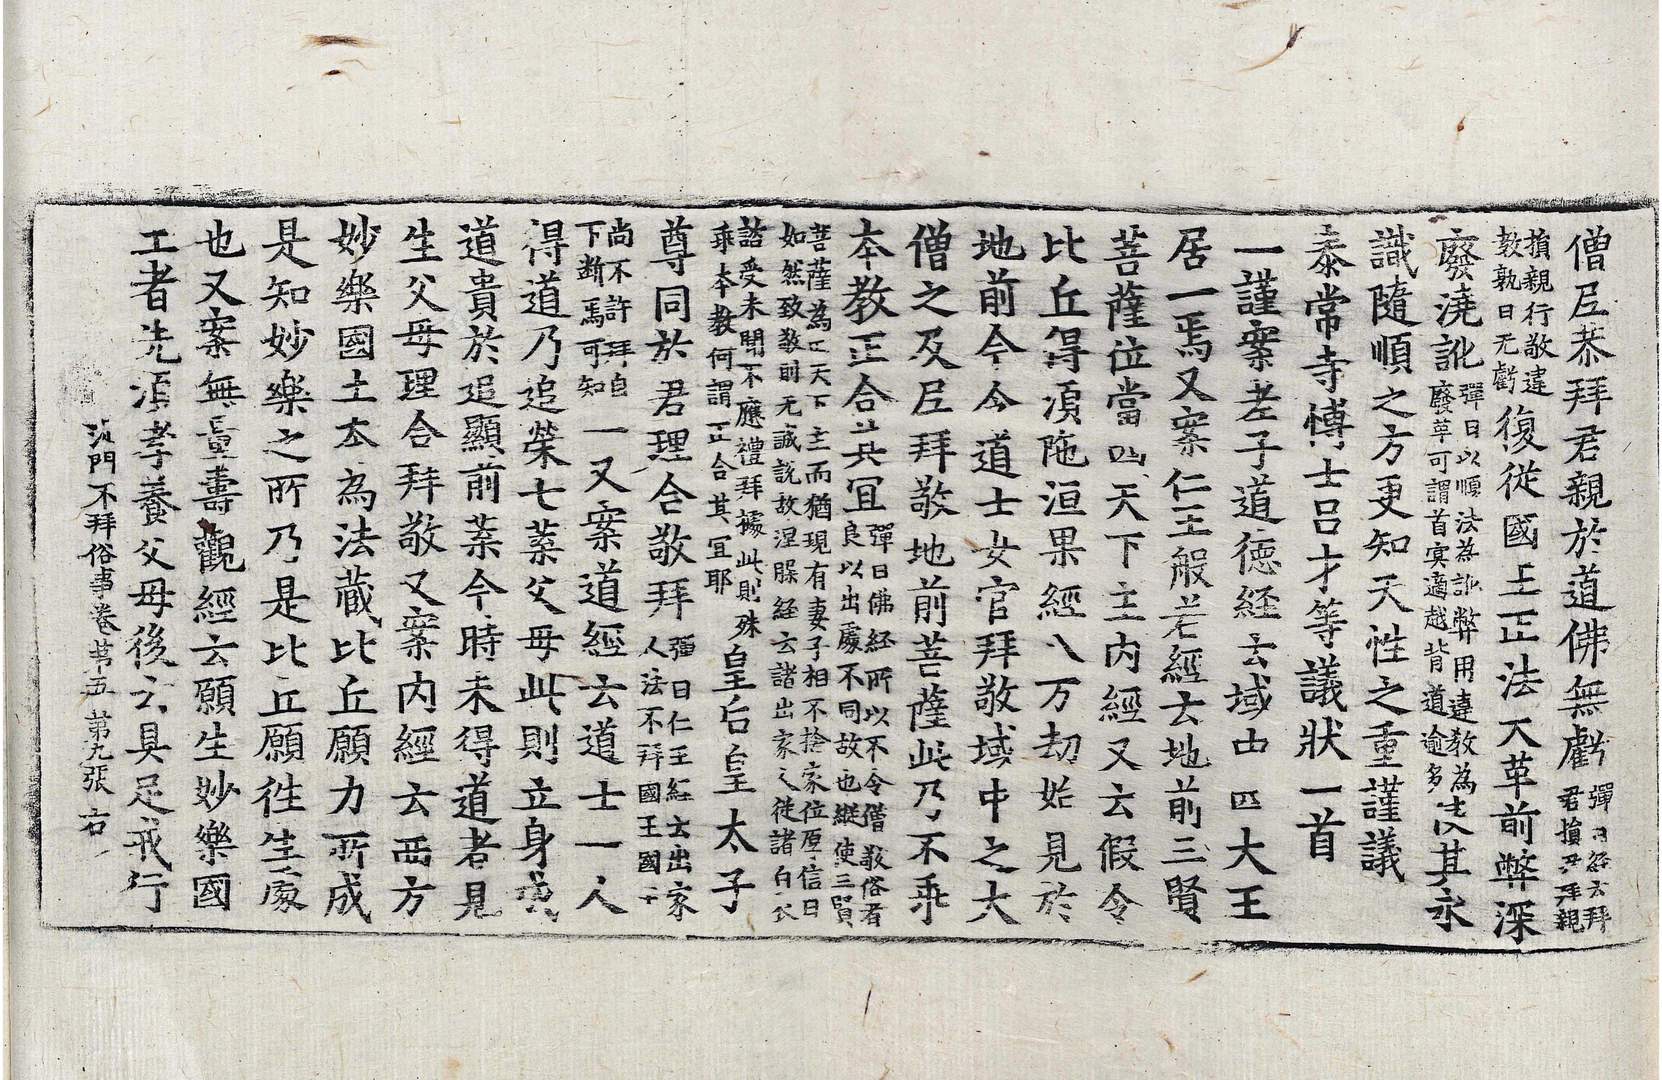 僧尼恭拜君親於道佛無虧彈曰經云拜君損尹拜親
損親行敬違教孰曰无虧復從國王正法大革前弊深
廢澆訛彈曰以順法為訛弊用違教為廢革可謂首寘適越背道逾多其永
識隨順之方更知天性之重謹議
泰常寺博士呂才等議狀一首
一謹案老子道德經云域中四大王
居一焉又案仁王般若經云地前三賢
菩薩位當四天下主內經又云假令
比丘得湏陁洹果經八万劫始見於
地前今令道士女官拜敬域中之大
僧之及尼拜敬地前菩薩此乃不乖
本教正合共冝彈曰佛經所以不令僧敬俗者良以出處不同故也縱使三賢
菩薩為四天下主而猶現有妻子相不捨家位厓信曰如然致敬前无誠說故涅脵經云諸出家人從諸白衣
諮受未聞不應禮拜據此則殊乖本教何謂正合其冝耶皇后皇太子
尊同於君理合敬拜彈曰仁王經云出家人法不拜國王國
尚不許拜自下断焉可知一又案道經云道士一人
得道乃追榮七葉父母此則立身成
道貴於追顯前葉今時未得道者見
生父母理合拜敬又案內經云西方
妙樂國土本為法蔵比丘願力所成
是知妙樂之所乃是比丘願徃生處
也又案無量壽觀經云願生妙樂國
土者先湏孝養父母後云具足戒行
沙門不拜俗事卷第五 第九張 右